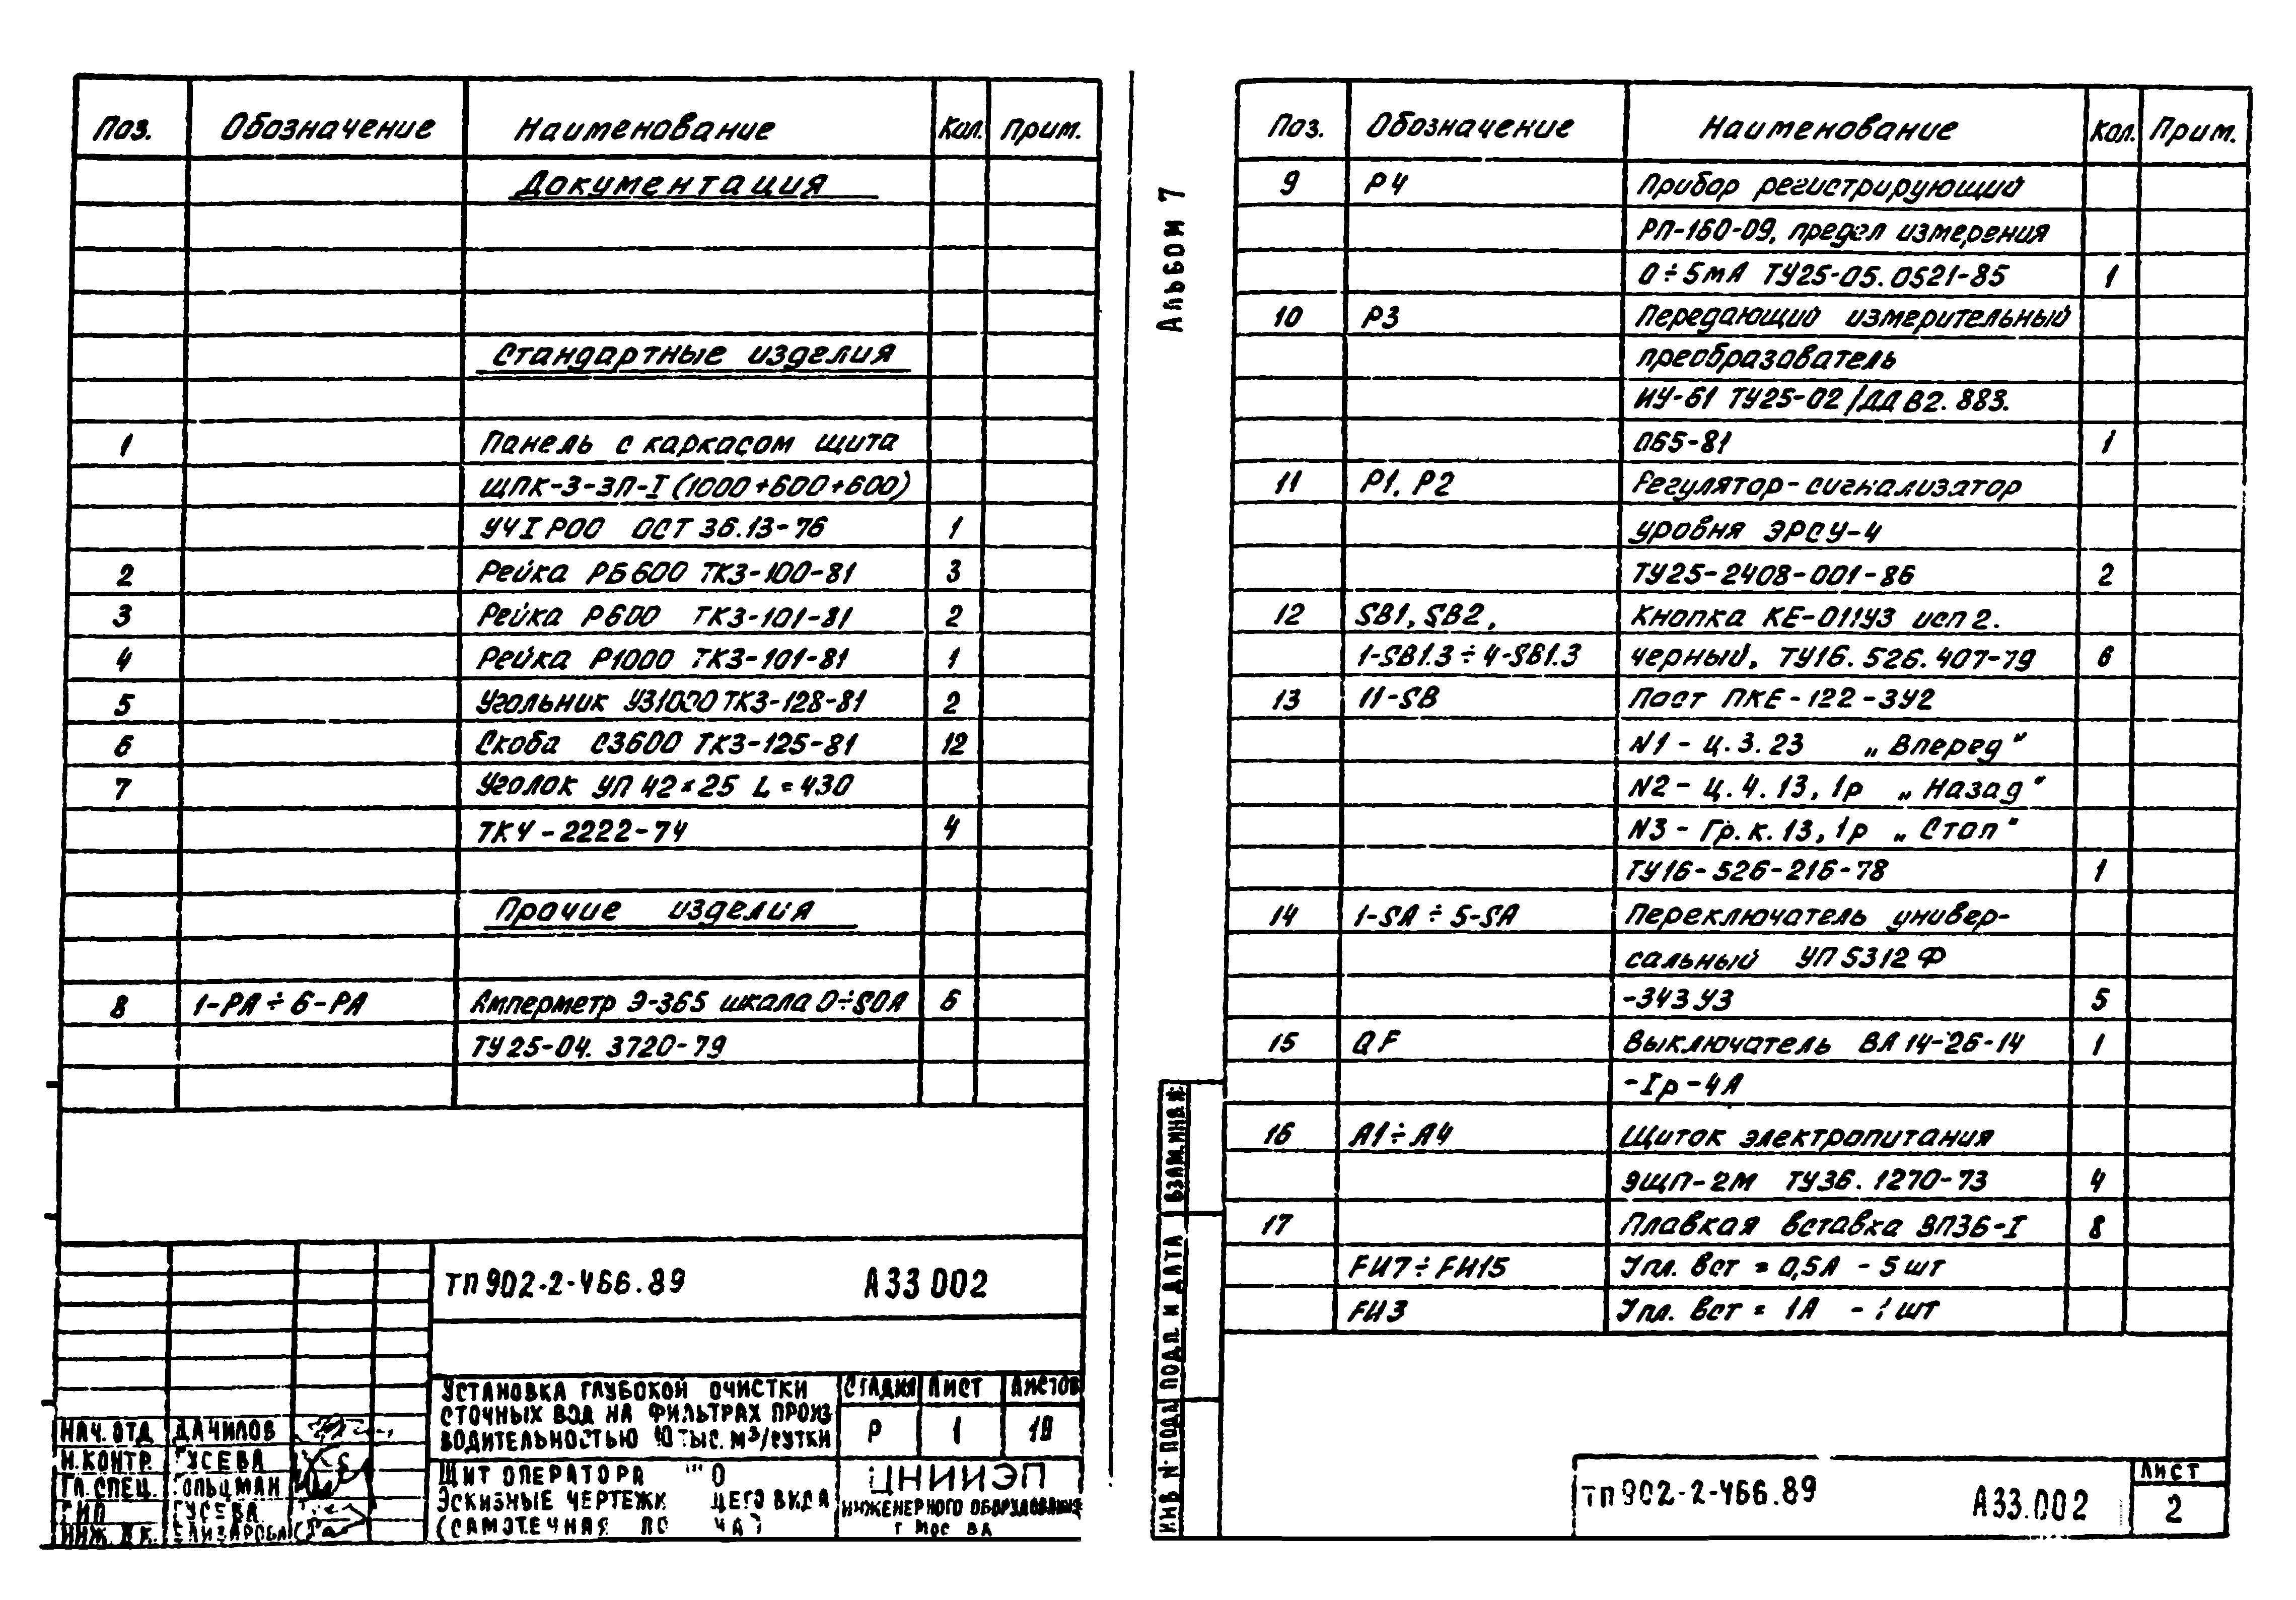 Поз. Обозначение Наименование Кол. Прим.
Документация
Стандартные изделия
1 Панель с каркасом щита
ЩПК-3-ЗП-I (1000+600+600)
УЧ I Р00 ОСТ 36.13-76 1
2 Рейка РБ600 ТК3-100-81 3
3 Рейка Р600 ТК3-101-81 2
4 Рейка Р1000 ТК3-101-81 1
5 Угольник УЗ1000 ТК3-128-81 2
6 Скоба С3600 ТК3-125-81 12
7 Уголок УП 42×25 L=430
ТК4-2222-74 4
Прочие изделия
8 1-РА÷6-РА Амперметр Э-365 шкала 0÷50А 6
ТУ25-04.3720-79
ТП902-2-466.89 А33 002
Установка глубокой очистки
сточных вод на фильтрах произ
водительностью 10 тыс. м³/сутки
Стадия Лист Листов
Р 1 18
Щит оператора
Эскизные чертежи
(самотечная
ЦНИИЭП
инженерного оборудования
Нач. отд Данилов
Н. контр. Гусева
Гл. спец. Гольцман
ГИП Гусева
Инж. Елизарова
Альбом 7
Поз. Обозначение Наименование Кол. Прим.
9 Р4 Прибор регистрирующий
РП-160-09, предел измерения
0÷5мА ТУ25-05.0521-85 1
10 Р3 Передающий измерительный
преобразователь
ИУ-61 ТУ25-02/ДДВ2.883.
065-81 1
11 Р1, Р2 Регулятор-сигнализатор
уровня ЭРСУ-4
ТУ25-2408-001-86 2
12 SB1, SB2, Кнопка КЕ-011У3 исп 2.
1-SB1.3÷4-SB1.3 черный, ТУ16.526.407-79 6
13 11-SB Пост ПКЕ-122-3У2
N1-ц.3.23 „Вперед"
N2-ц.4.13, 1р „Назад"
N3-Гр.к.13, 1р „Стоп"
ТУ16-526-216-78 1
14 1-SA÷5-SA Переключатель универ-
сальный УП5312 Ф
-343 У3 5
15 QF Выключатель ВА 14-26-14 1
-Iр-4А
16 А1÷А4 Щиток электропитания
ЭЩП-2М ТУ36.1270-73 4
17 Плавкая вставка ВП3Б-I 8
FU7÷FU15 Iпл. вст = 0,5А - 5 шт
FU3 Iпл. вст = 1А - 1 шт
Взам. инв. №
Подп. и дата
Инв N подл
ТП902-2-466.89 А33.002
Лист
2